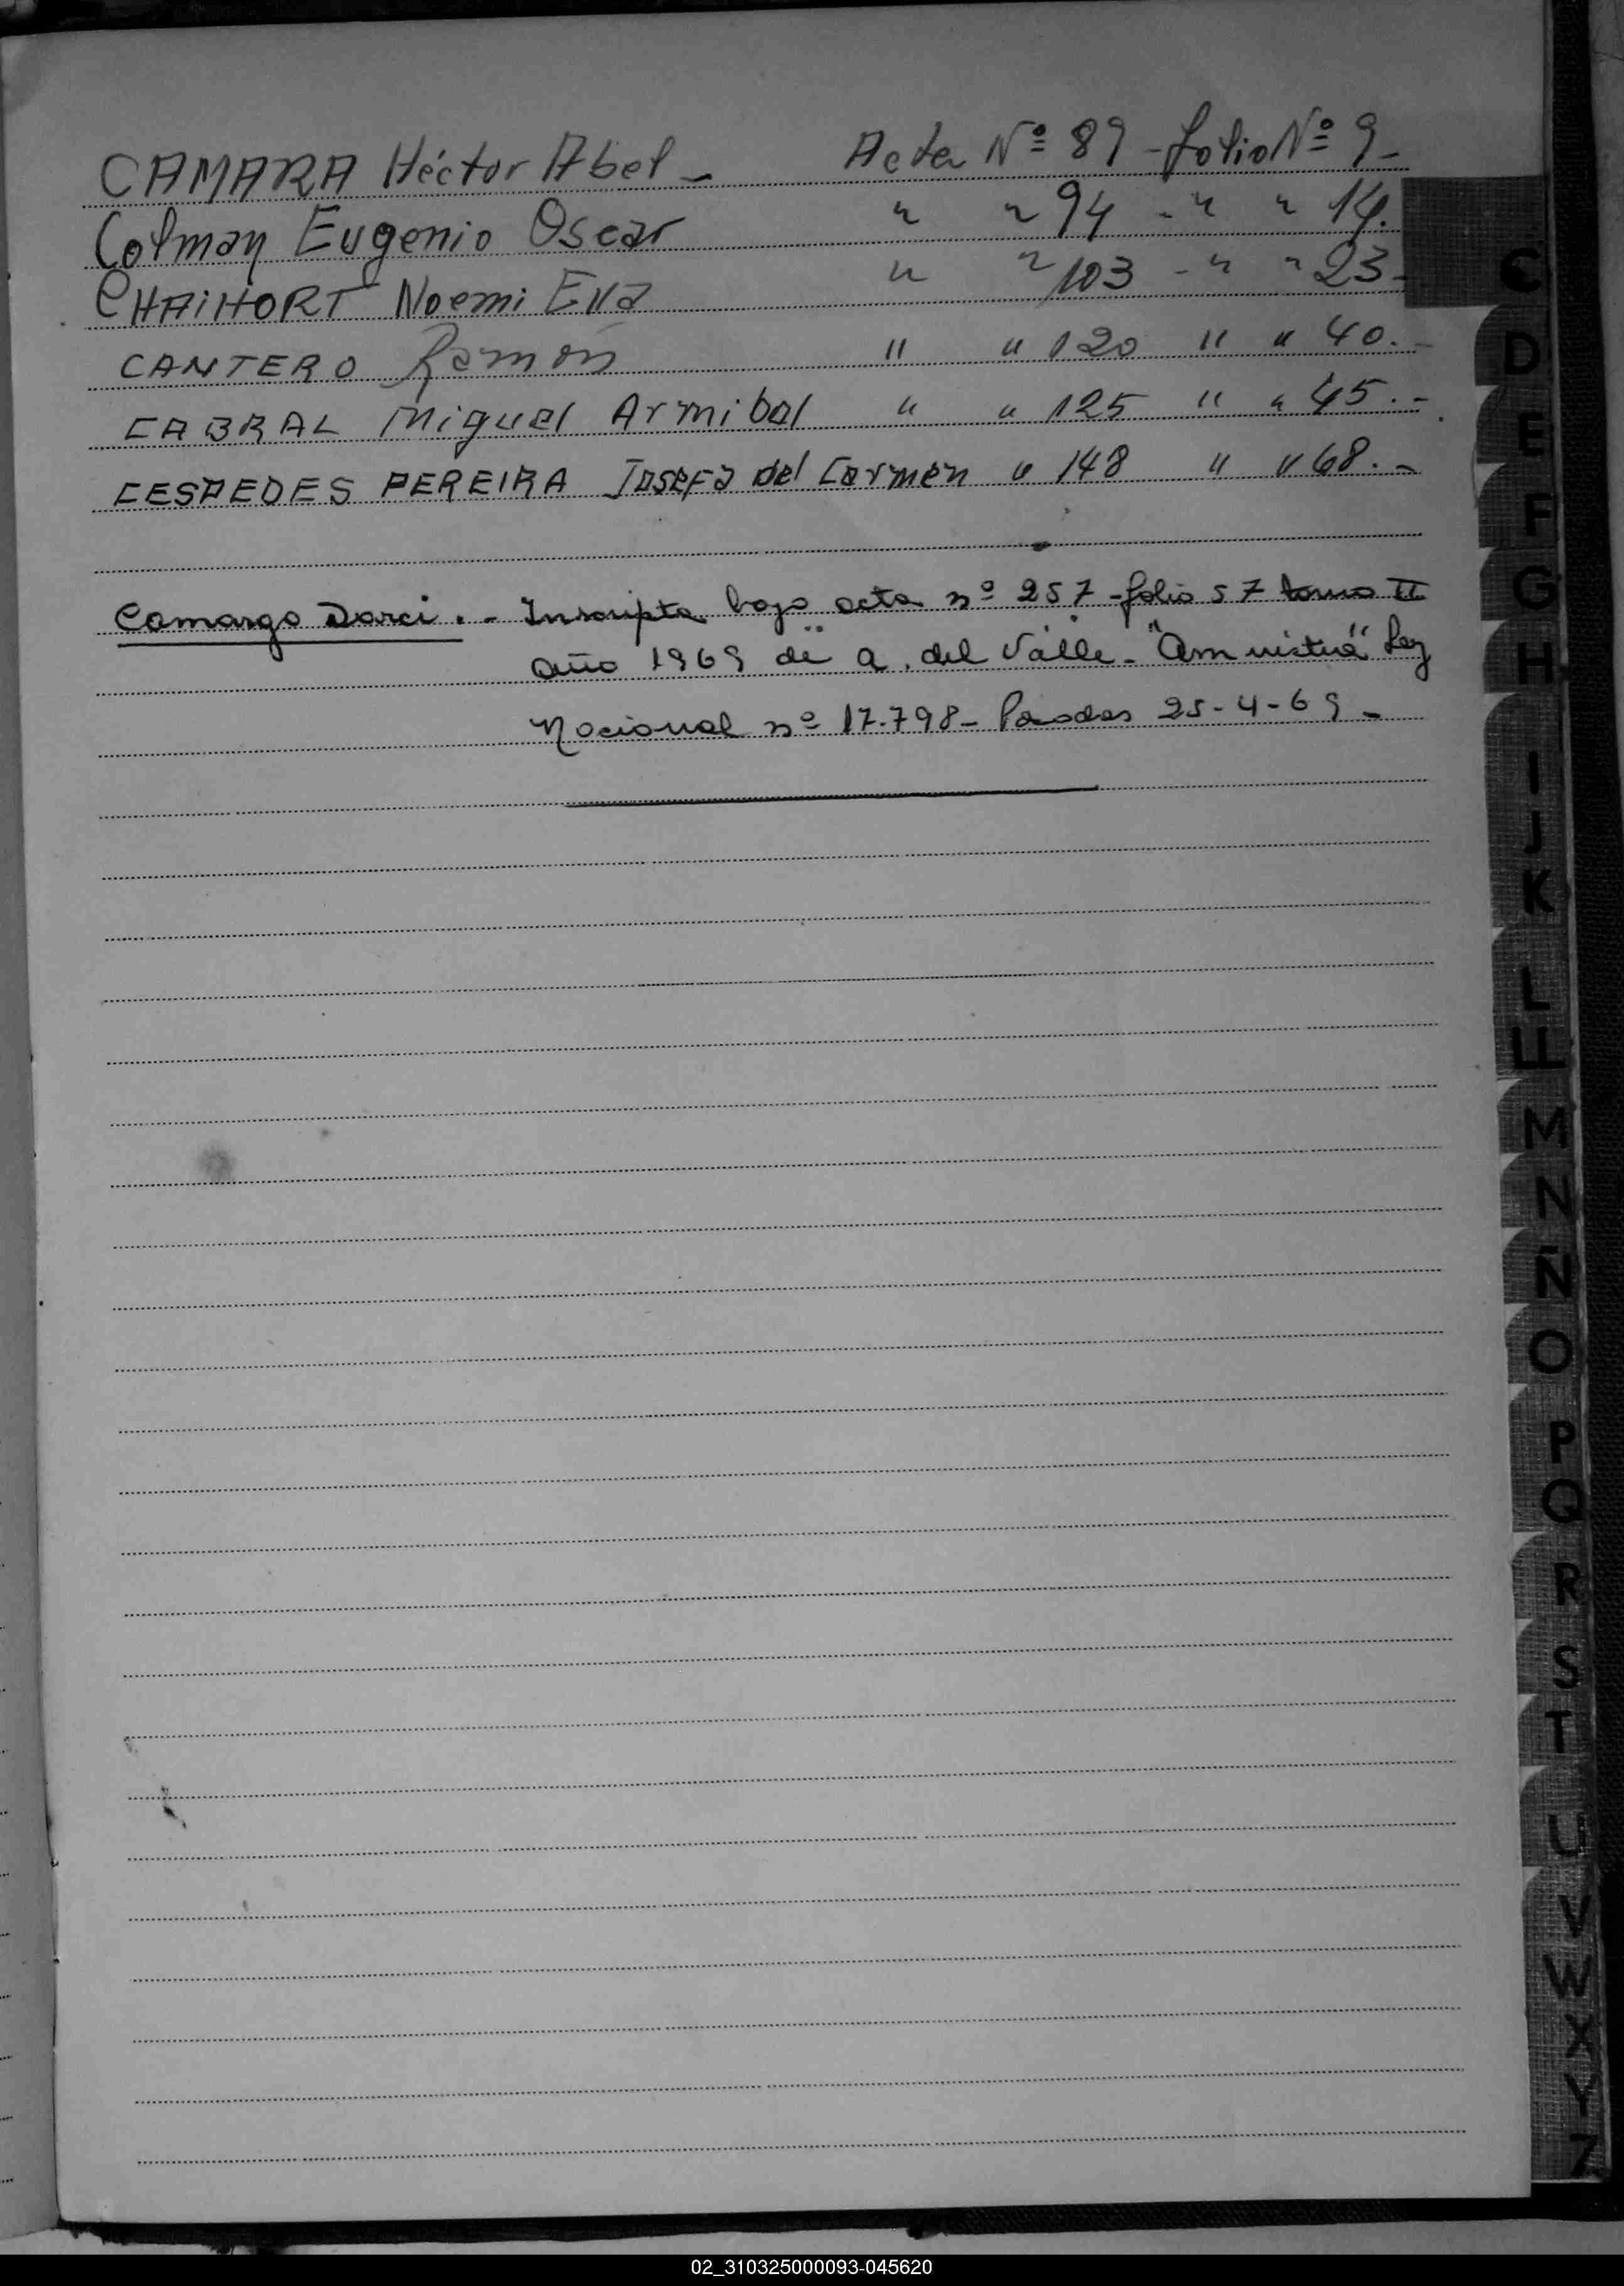 CAMARA Héctor Abel - Acta Nº 89 - folio Nº 9 -
Colman Eugenio Oscar " " 94 - " " 14.
CHAIHORT Noemi Eva " " 103 - " " 23 -
CANTERO Ramón " " 120 " " 40. -
CABRAL Miguel Armibal " " 125 " " 45. -
CESPEDES PEREIRA Josefa del Carmen " 148 " " 68. -
Camargo Darci. - Inscripta bajo acta nº 257 - folio 57 tomo II
año 1969 de a. del Valle - "Amnistia" Ley
Nacional nº 17.798 - Posadas 25-4-69 -
C
D
E
F
G
H
I
J
K
L
LL
M
N
Ñ
O
P
Q
R
S
T
U
V
W
X
Y
Z
02_310325000093-045620